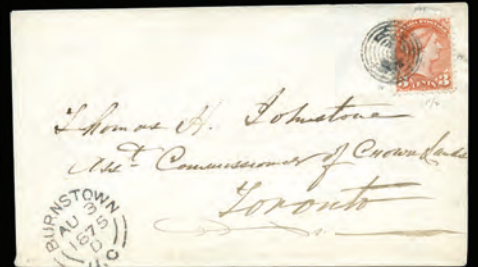 CENTS 3
Thomas H. Johnstone
Asst Commissioner of Crown Lands
Toronto
BURNSTOWN
AU 3
1875
D
U.C